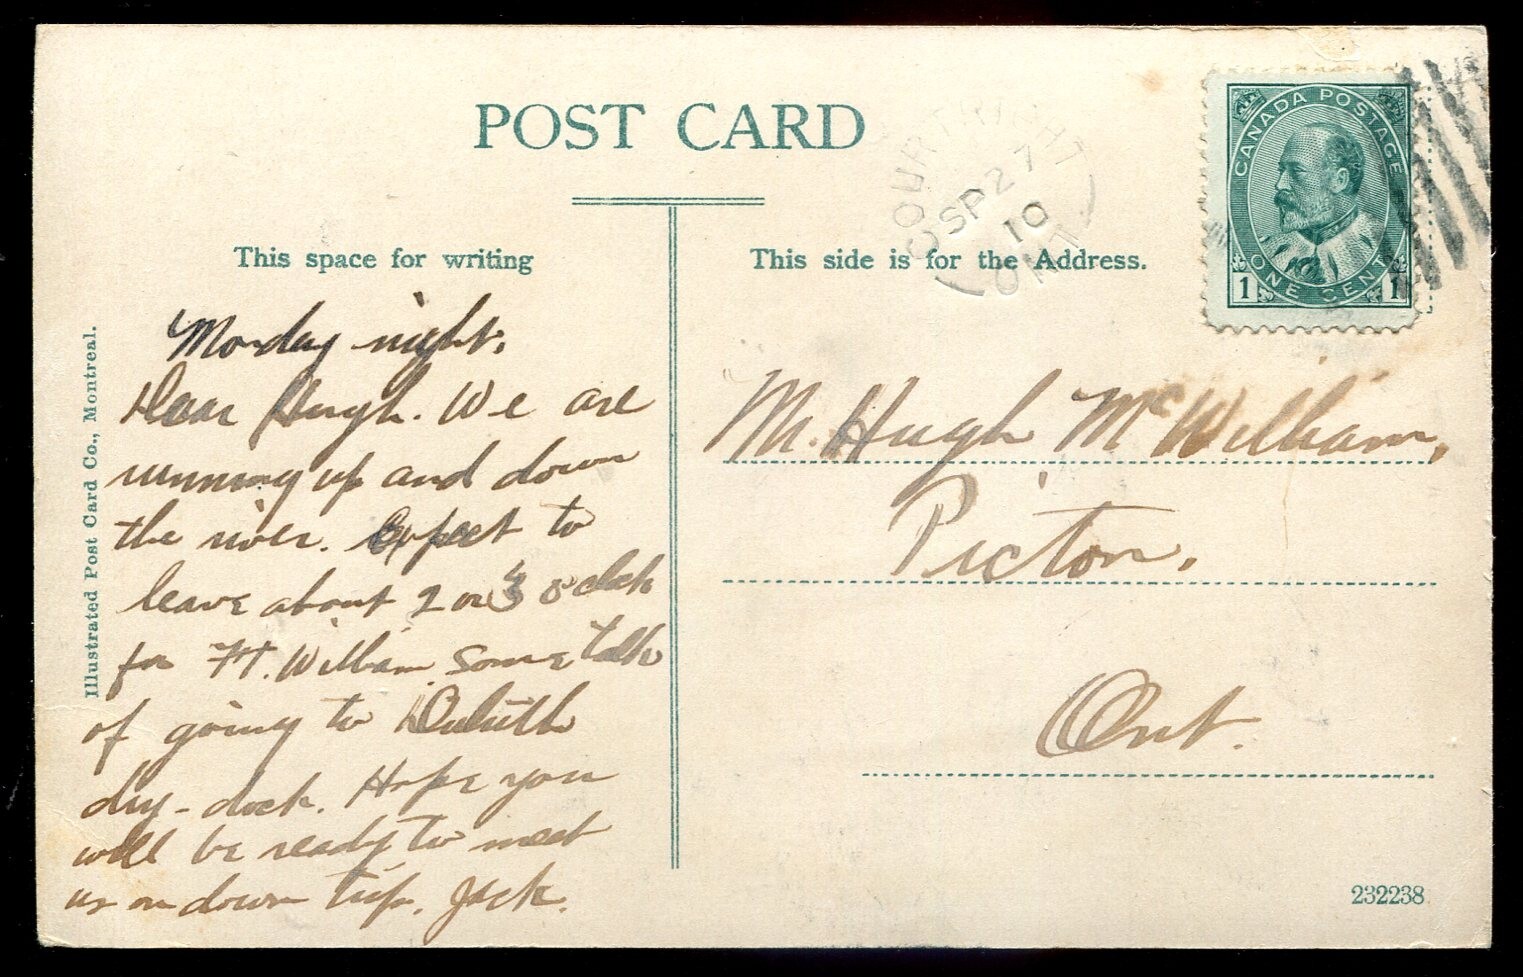 POST CARD
COURTRIGHT
SP 27
10
ONT
CANADA POSTAGE
1 ONE CENT 1
This space for writing
This side is for the Address.
Monday night.
Dear Hugh. We are
running up and down
the river. Expect to
leave about 2 or 3 o'clock
for Ft. William. Some talk
of going to Duluth
dry-dock. Hope you
will be ready to meet
us on down trip. Jack.
Mr. Hugh McWilliam,
Picton.
Ont.
Illustrated Post Card Co., Montreal.
232238